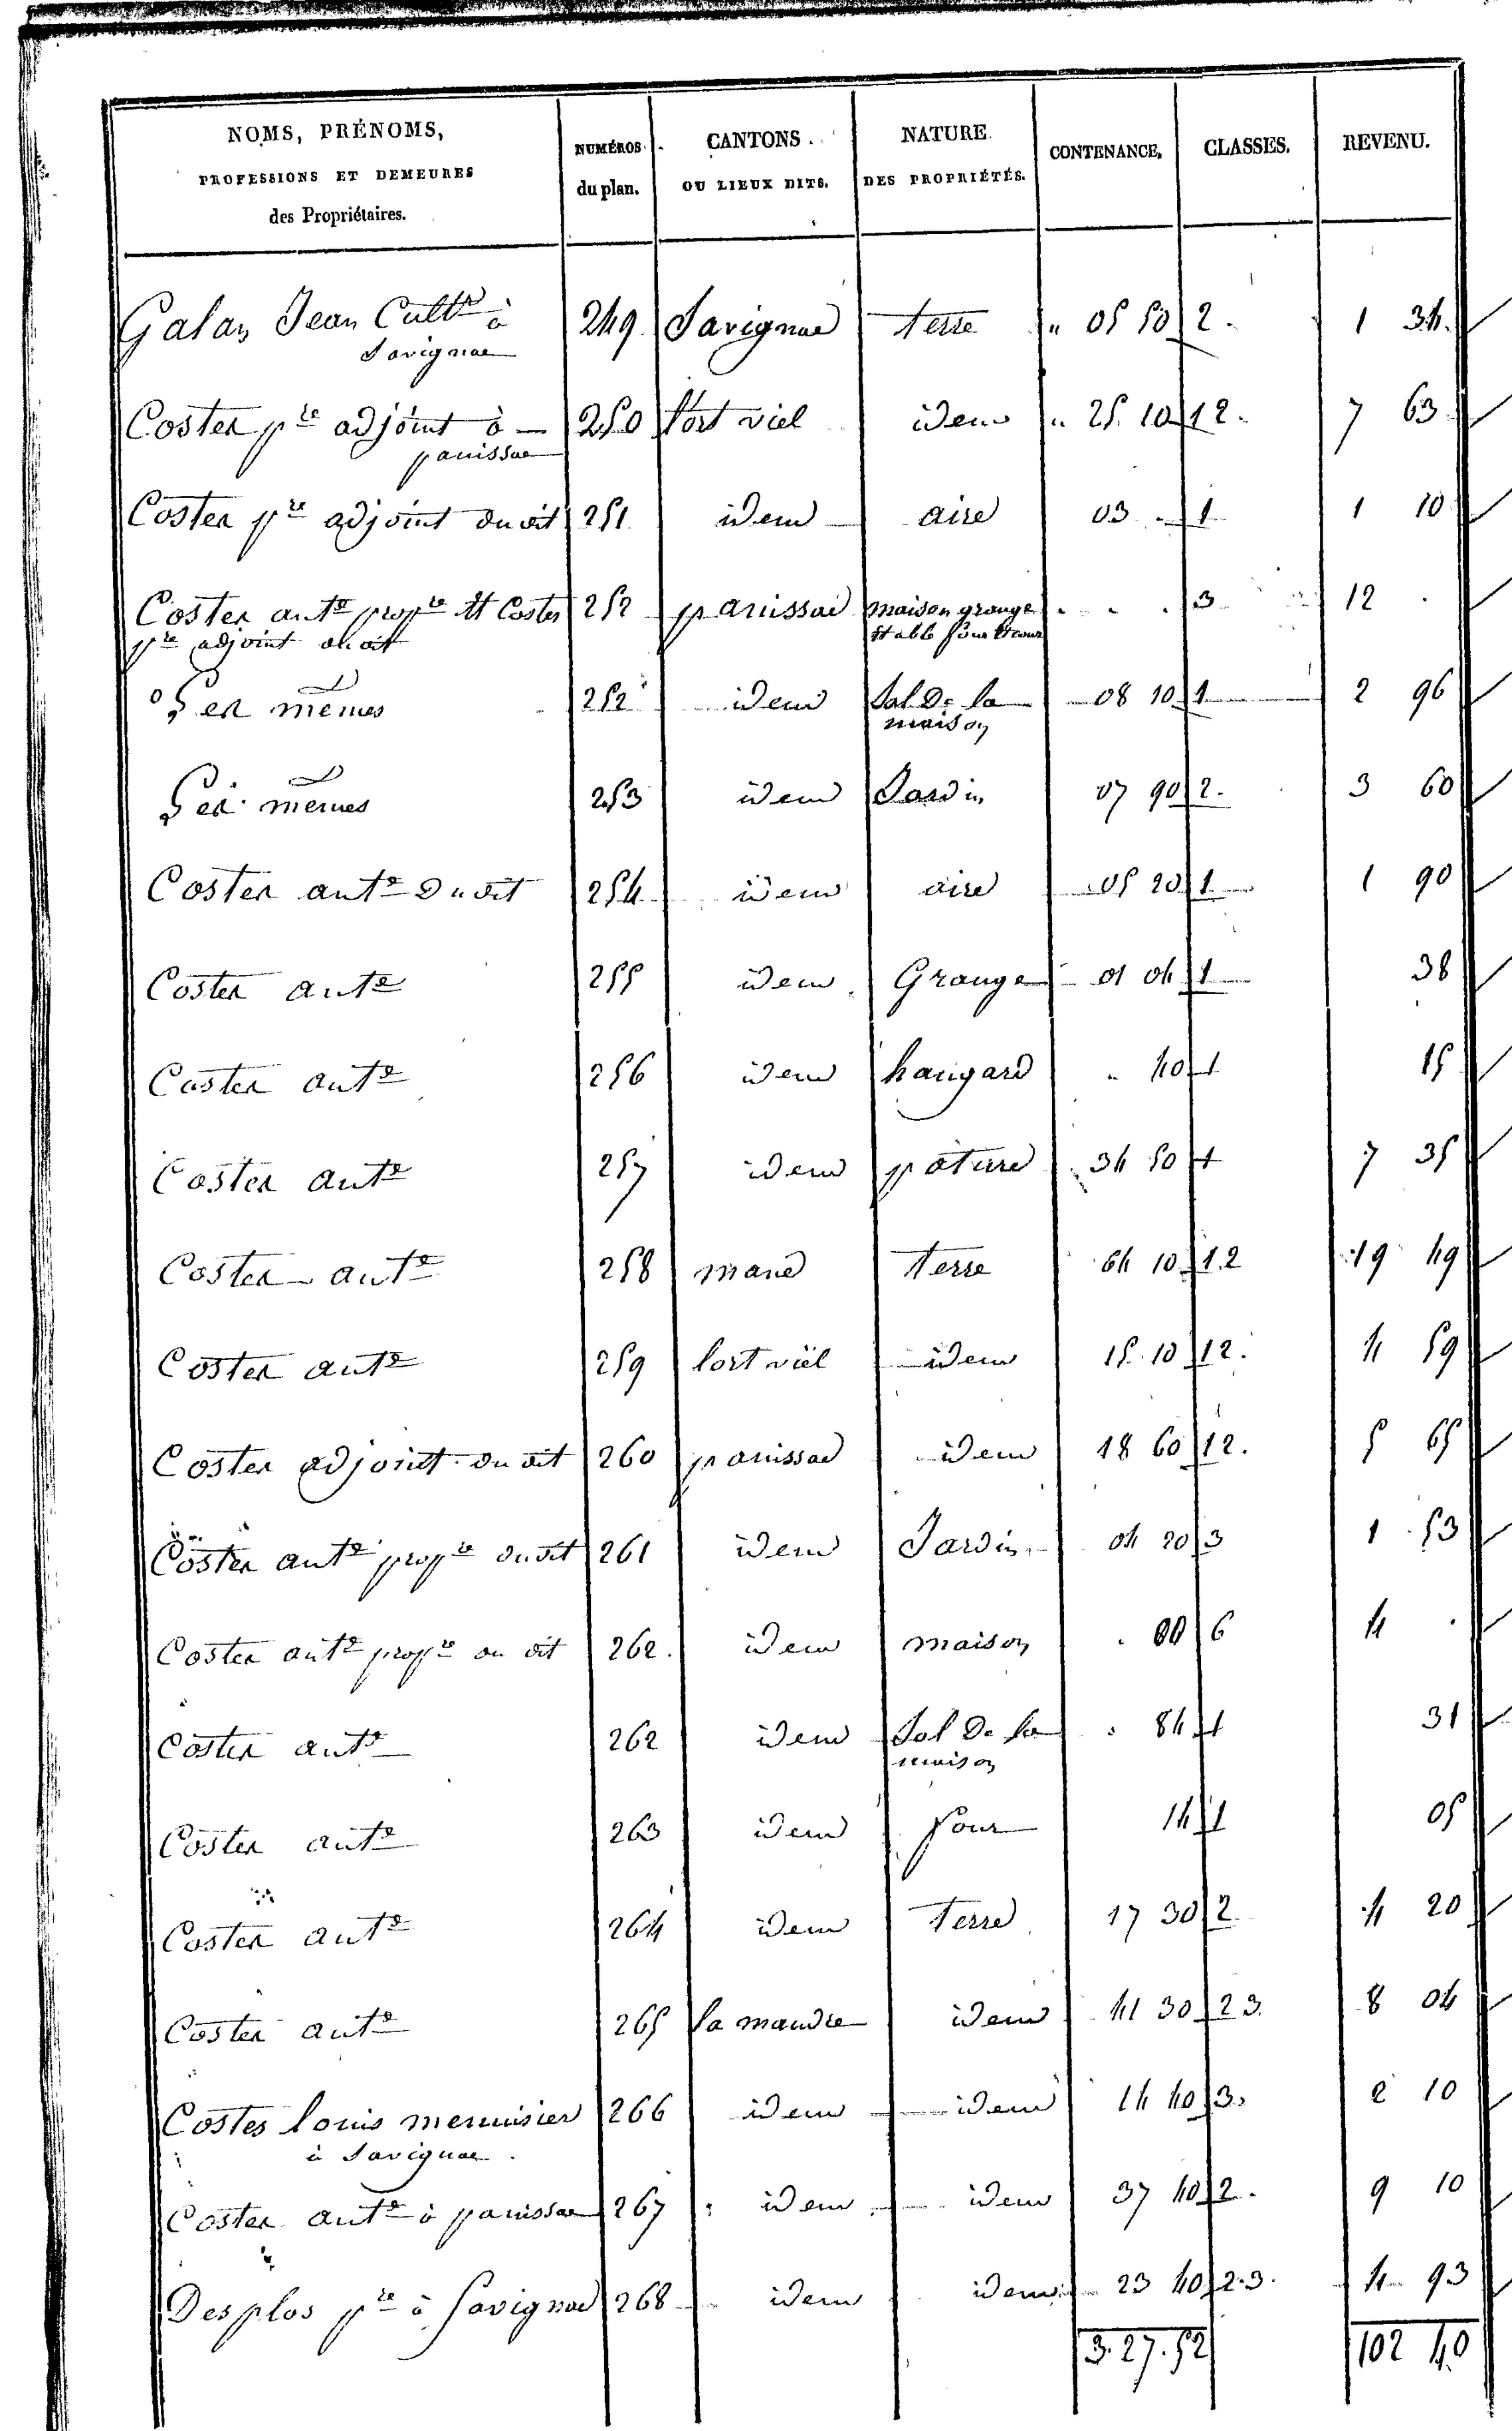 NOMS, PRÉNOMS, PROFESSIONS ET DEMEURES des Propriétaires. NUMÉROS du plan. CANTONS OU LIEUX DITS. NATURE DES PROPRIÉTÉS. CONTENANCE. CLASSES. REVENU.
Galan Jean Cultr à Savignac 249 Savignac terre " 05 50 2. 1 34.
Coster pre adjoint à panissac 250 l'ort viel idem " 25 10 12. 7 63
Coster pre adjoint dudit 251 idem aire 03 . 1 1 10
Coster ante propre et Coster pre adjoint dudit 252 panissac maison grange étable four et cour . . . 3 12 .
Les mêmes 252 idem Sol De la maison 08 10 1 2 96
Les mêmes 253 idem Jardin 07 90 2. 3 60
Coster ante Dudit 254 idem aire 05 20 1 1 90
Coster ante 255 idem Grange 01 04 1 38
Coster ante 256 idem hangard " 40 1 15
Coster ante 257 idem pature 34 50 1 7 35
Coster ante 258 terre 64 10 1.2 19 49
Coster ante 259 lort viel idem 15 10 12. 4 59
Coster adjoint dudit 260 panissac idem 18 60 12. 5 65
Coster ante propre dudit 261 idem Jardin 04 20 3 1 53
Coster ante propre du dit 262. idem maison . 00 6 4 .
Coster ante 262 idem Sol De la maison . 84 1 31
Coster ante 263 idem four 14 1 05
Coster ante 264 idem terre 17 30 2 4 20
Coster ante 265 idem 41 30 2 3. 8 04
Costes louis menuisier à Savignac 266 idem idem 14 40 3. 2 10
Coster ante à panissac 267 idem idem 37 40 2. 9 10
Desplos pre à Savignac 268 idem idem 23 40 2.3. 4 93
3.27.52 102 40